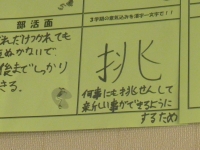 部活面
3学期の意気込みを漢字一文字で!!
れだけつかれても
ぬかないで、
後までしっかり
きる。
挑
何事にも挑せんして
新しい事ができるように
するため